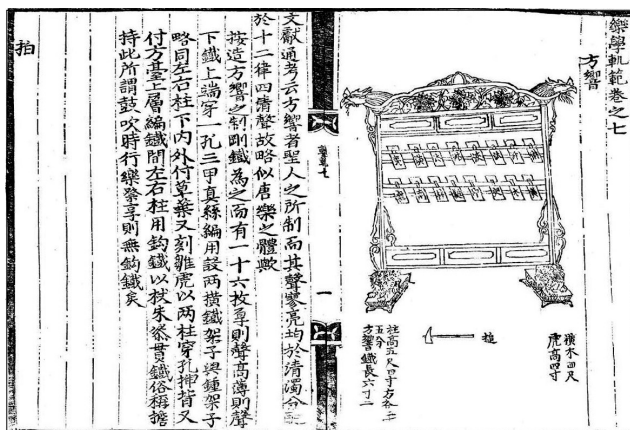 樂學軌範卷之七
方響
槌
橫木四尺
虎高四寸
柱高五尺四寸方各一寸
五分
方響鐵長六寸二
樂覓七
一
文獻通考云方響者聖人之所制而其聲寥亮均於清濁合
於十二律四淸聲故略似唐樂之體歟
按造方響之制剛鐵爲之而有一十六枚厚則聲高薄則聲
下鐵上端穿一孔二甲眞絲編用設兩橫鐵架子與鍾架子
略同左右柱下內外付草葉又刻雛虎以兩柱穿孔揷背又
付方臺上層編鐵間左右柱用鉤鐵以杖朱漆貫鐵俗稱擔
持此所謂鼓吹時行樂祭享則無鉤鐵矣
拍